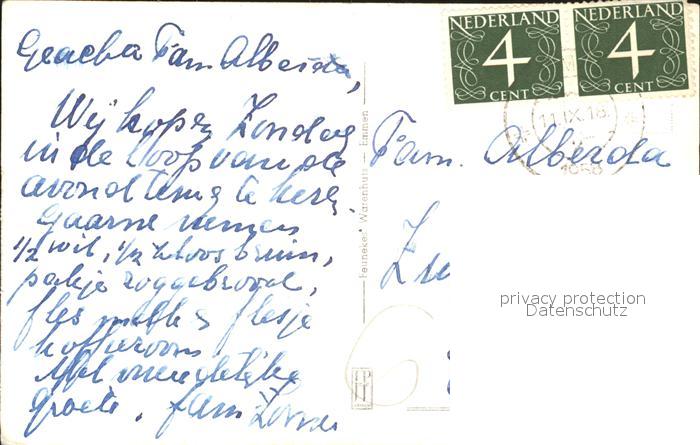 Geachte Fam Alberda,
Wij hopen Zondag
in de loop van de
avond terug te keren.
Gaarne nemen
1/2 wit, 1/2 bruin,
pakje roggebrood,
fles melk & flesje
koffieroom
Met vriendelijke
groete, fam
NEDERLAND
4
CENT
NEDERLAND
4
CENT
11.IX.18
1958
Fam. Alberda
privacy protection
Datenschutz
Warenhuis — Emmen